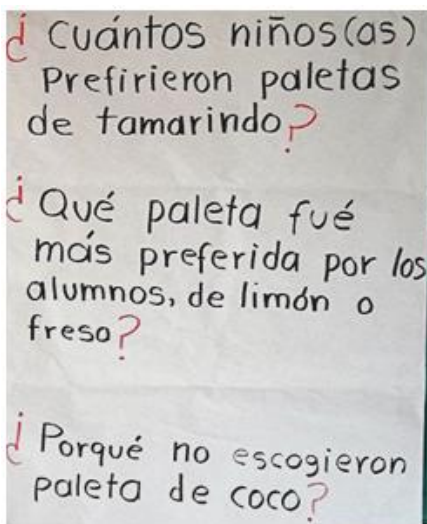 ¿Cuántos niños(as)
Prefirieron paletas
de tamarindo?
¿Qué paleta fué
más preferida por los
alumnos, de limón o
fresa?
¿Porqué no escogieron
paleta de coco?